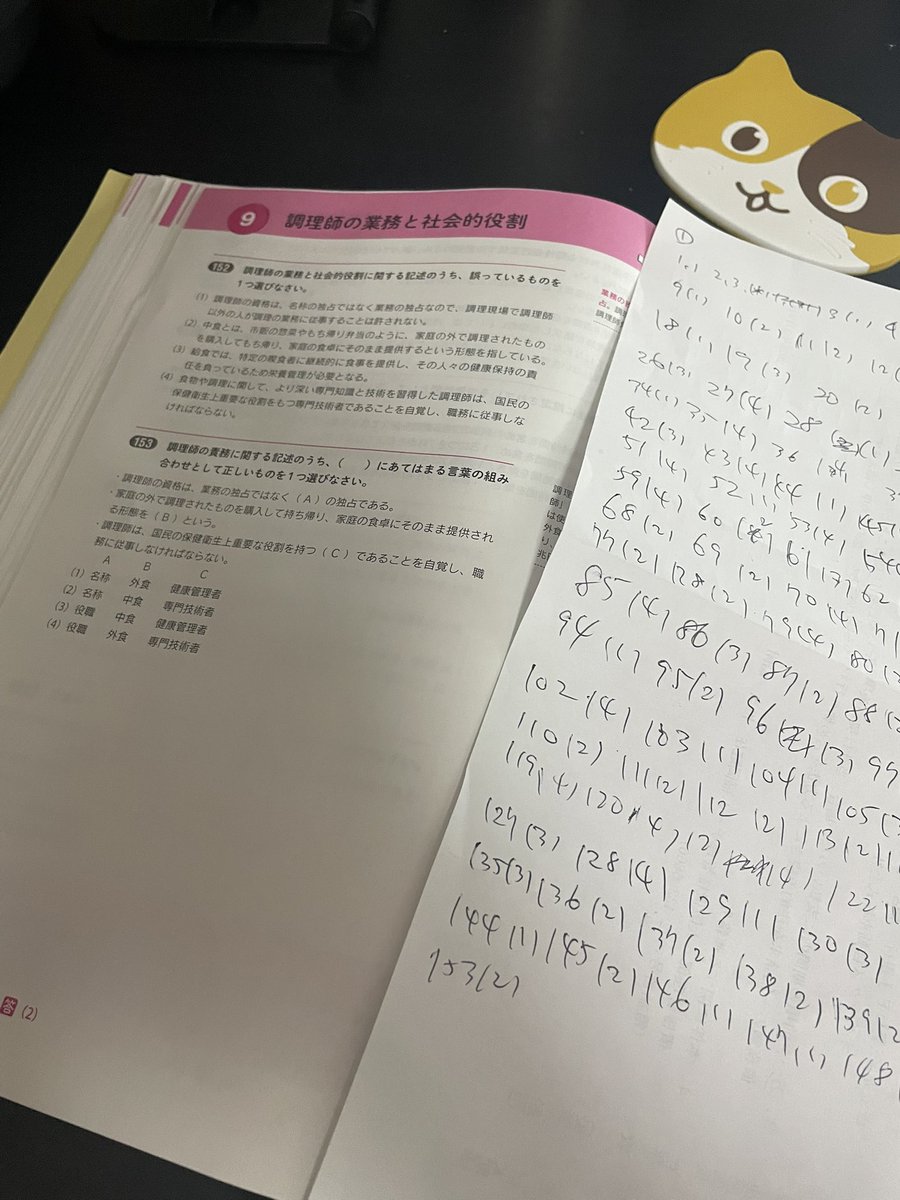 9 調理師の業務と社会的役割
152 調理師の業務と社会的役割に関する記述のうち、誤っているものを
1つ選びなさい。
(1) 調理師の資格は、名称の独占ではなく業務の独占なので、調理現場で調理師
以外の人が調理の業務に従事することは許されない。
(2) 中食とは、市販の惣菜やもち帰り弁当のように、家庭の外で調理されたもの
を購入してもち帰り、家庭の食卓にそのまま提供するという形態を指している。
(3) 給食では、特定の喫食者に継続的に食事を提供し、その人々の健康保持の責
任を負っているため栄養管理が必要となる。
(4) 食物や調理に関して、より深い専門知識と技術を習得した調理師は、国民の
保健衛生上重要な役割をもつ専門技術者であることを自覚し、職務に従事しな
ければならない。
153 調理師の責務に関する記述のうち、( )にあてはまる言葉の組み
合わせとして正しいものを1つ選びなさい。
・調理師の資格は、業務の独占ではなく(A)の独占である。
・家庭の外で調理されたものを購入して持ち帰り、家庭の食卓にそのまま提供され
る形態を(B)という。
・調理師は、国民の保健衛生上重要な役割を持つ(C)であることを自覚し、職
務に従事しなければならない。
A B C
(1) 名称 外食 健康管理者
(2) 名称 中食 専門技術者
(3) 役職 中食 健康管理者
(4) 役職 外食 専門技術者
答 (2)
業務の
占。調
調理師
調理
師」
は使
外食
り、
兆円
①
9(1)
10(2) 11(2)
18(1) 19(3) 20(2)
26(3) 27(4) 28 (1)
35(4) 36
42(3) 43(4) 44(1) 45(
51(4) 52(1) 53(4
59(4) 60 61 62
68(2) 69 (2) 70(4) 71
77(2) 78(2) 79(4) 80
85(4) 86(3) 87(2) 88
94(1) 95(2) 96 (3) 97
102(4) 103(1) 104(1) 105(3
110(2) 111(2) 112(2) 113(2)
119(4) 120(4) (4) 122
127(3) 128(4) 129(1) 130(3)
135(3) 136(2) 137(2) 138(2) 139(2
144(1) 145(2) 146(1) 147(1) 148
153(2)